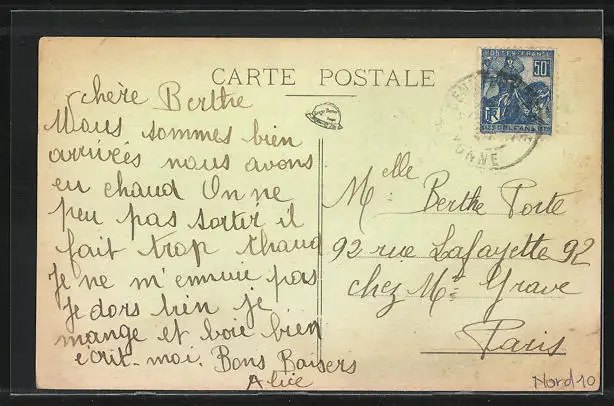 CARTE POSTALE
chère Berthe
Nous sommes bien
arrivés nous avons
eu chaud On ne
peu pas sortir il
fait trop chaud
Je ne m'ennuie pas
Je dors bien je
mange et boie bien
écrit-moi. Bons Baisers
Alice
POSTES FRANCE
50c
RF
ORLEANS
YONNE
Melle Berthe Porte
92 rue Lafayette 92
chez Me Grave
Paris
Nord 10